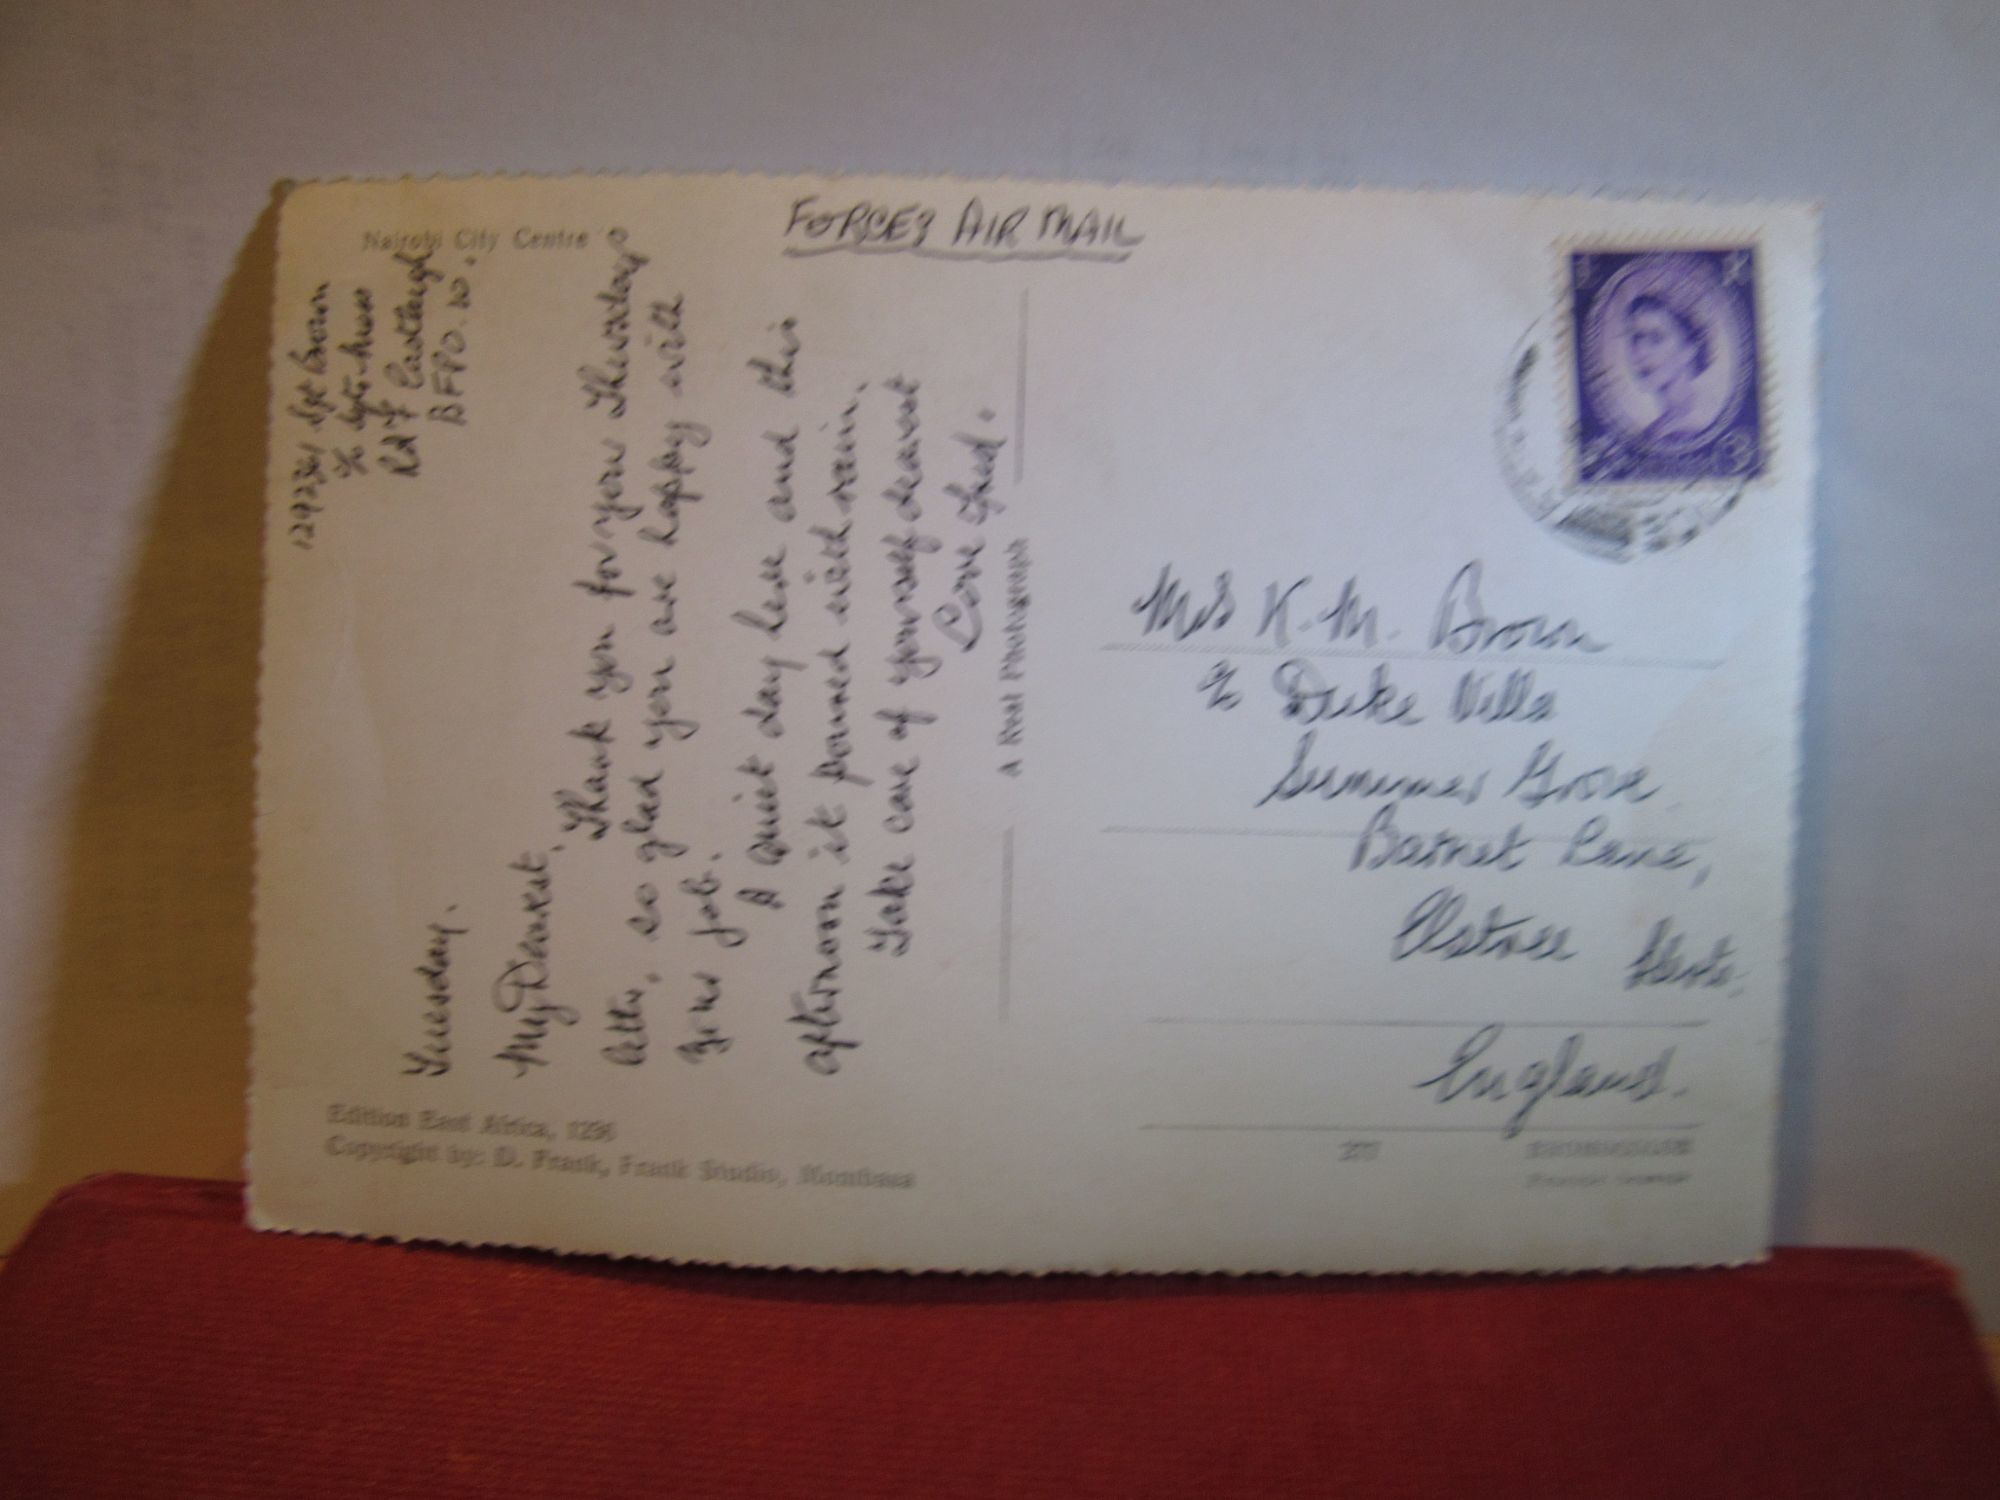 Nairobi City Centre
FORCES AIR MAIL
Sgt Brown
c/o Sgts Mess
RAF Eastleigh
BFPO. 10.
Tuesday.
My Dearest,
Thank you for your Thursdays
letter, so glad you are happy with
your job.
A quiet day here and this
afternoon it poured with rain.
Take care of yourself dearest
Love Fred.
A Real Photograph
Mrs K. M. Brown
c/o Duke Villa
Summer Grove
Barnet Lane,
Elstree Herts.
England.
Edition East Africa, 1296
Copyright by: D. Frank, Frank Studio, Mombasa